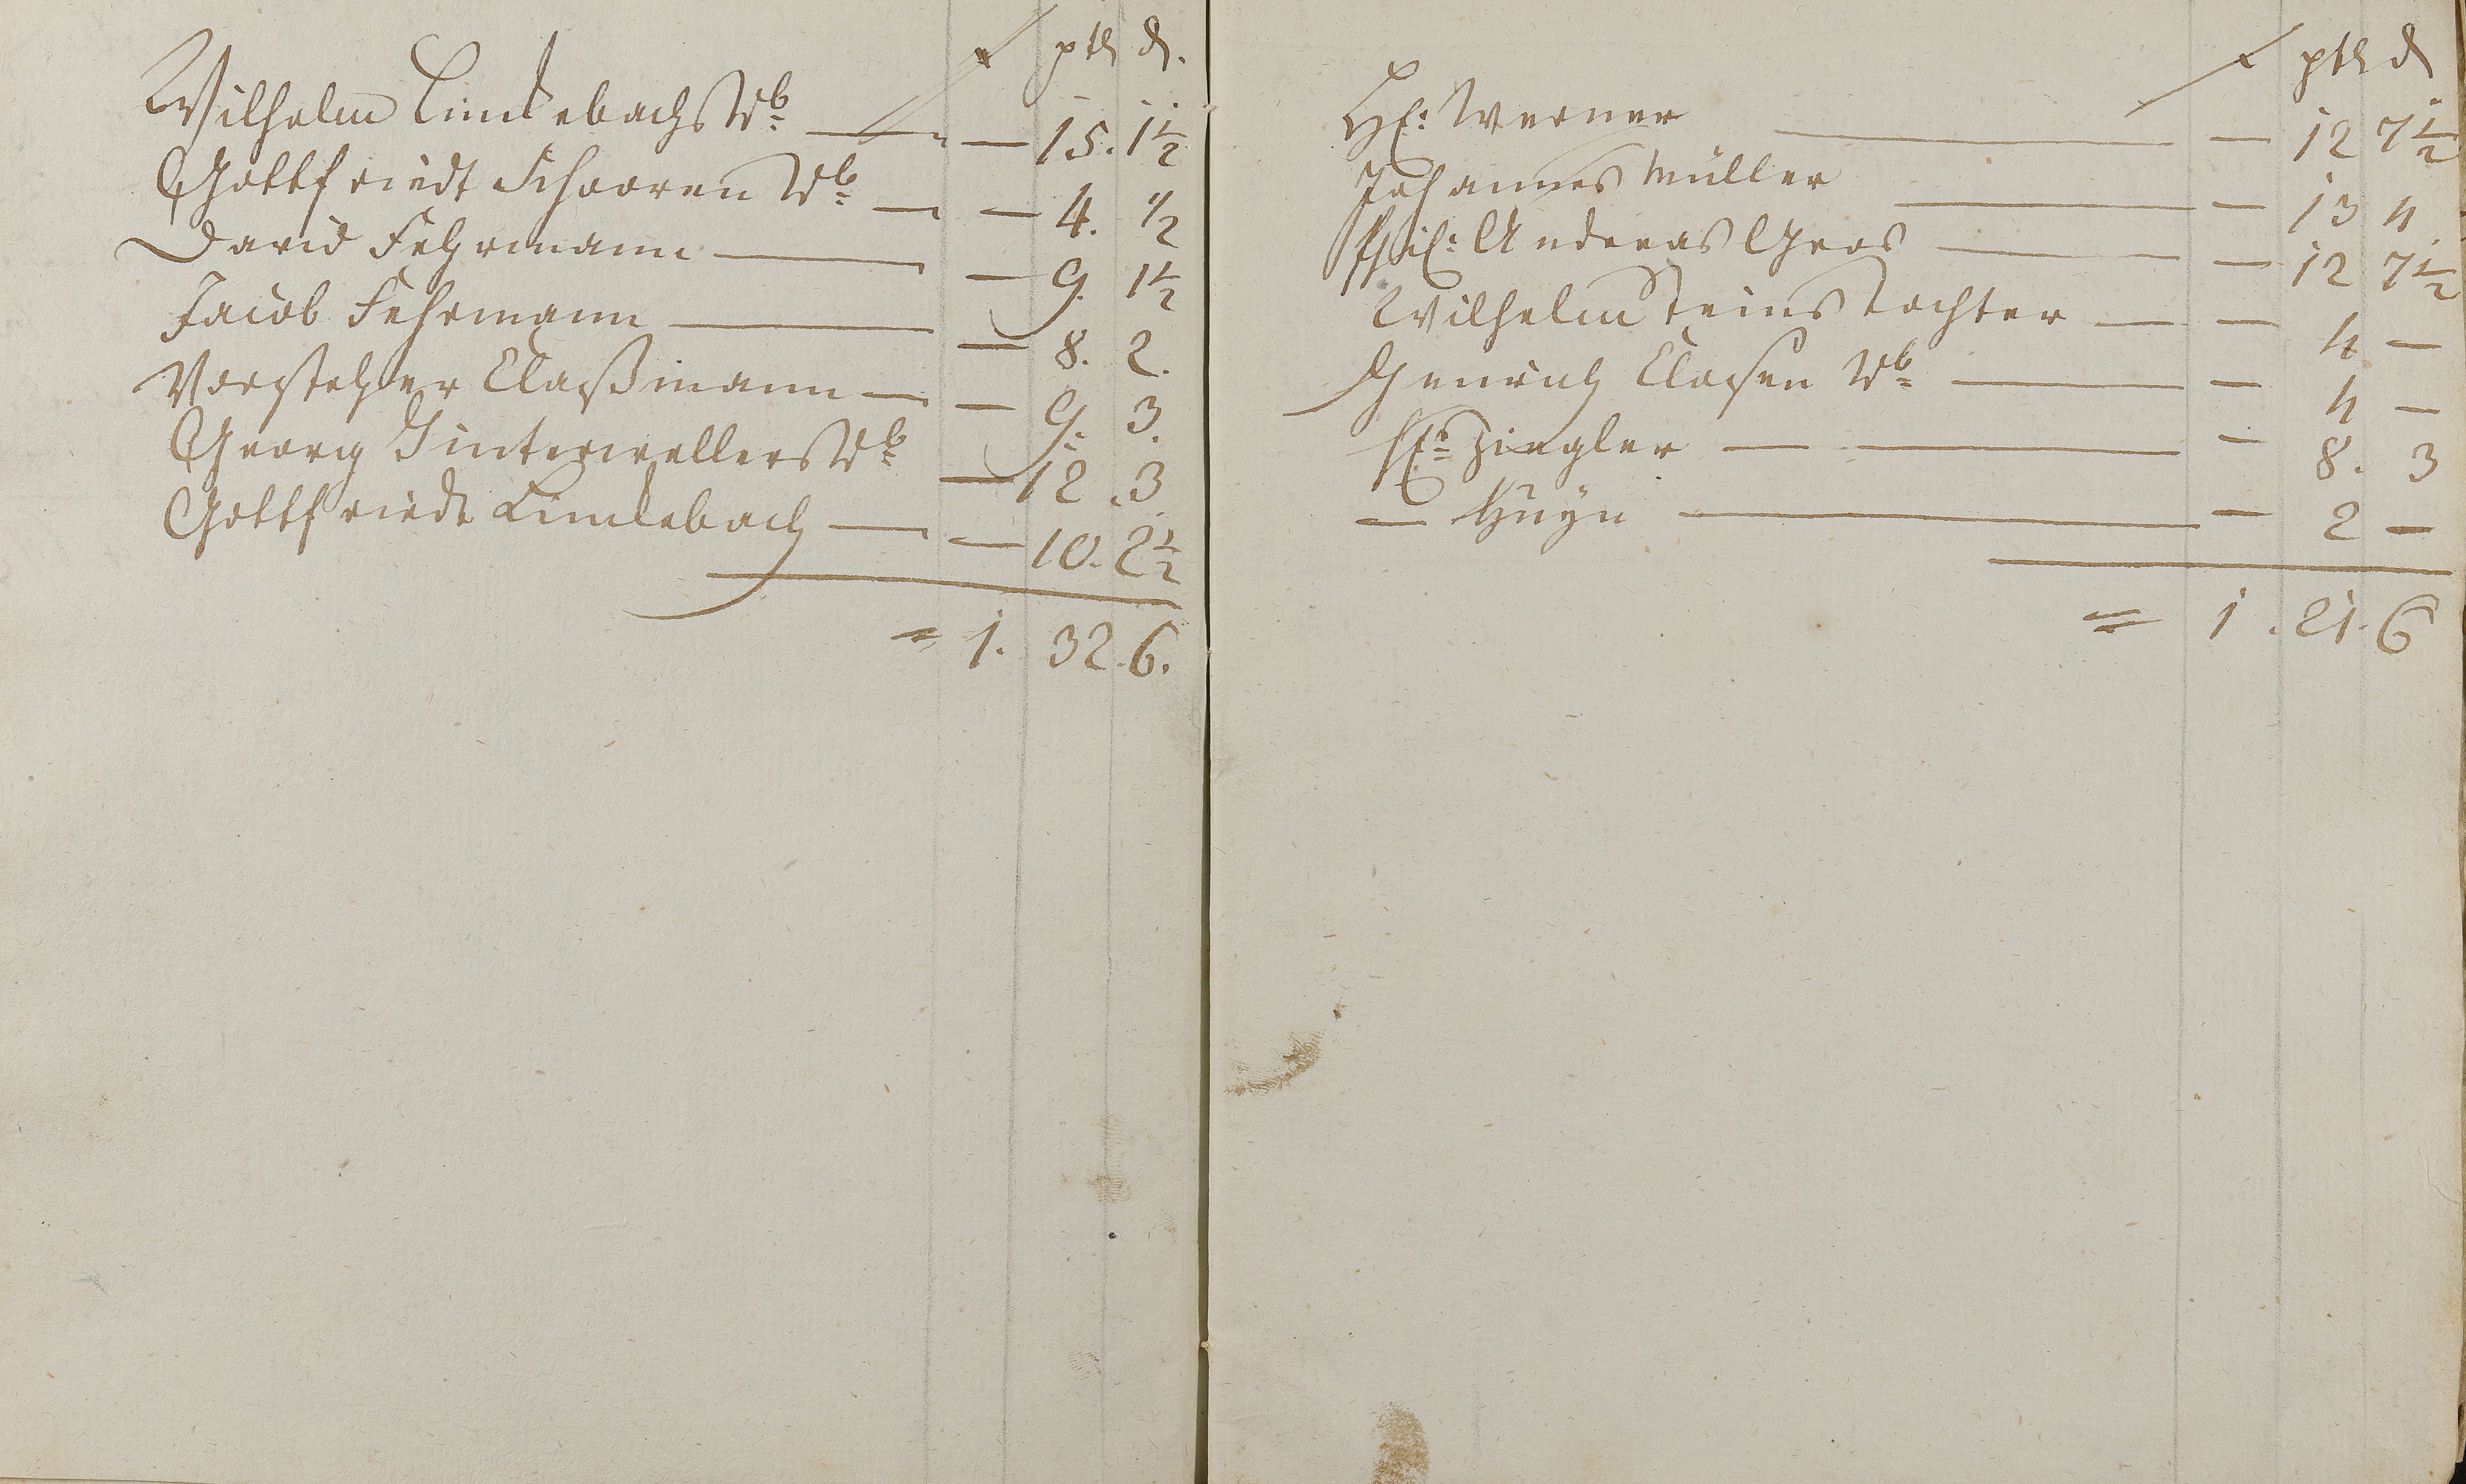 ptk d.
Wilhelm Lindebachs Wb — — 15. 1½
Gottfriedt Schooren Wb — — 4. ½
David Fehrmann — — 9. 1½
Jacob Fehrmann — — 8. 2.
Vorsteher Claßmann — — 9. 3.
Georg Hinterwellers Wb — 12. 3
Gottfriedt Lindebach — — 10. 2½
= 1. 32. 6.
ptk d
H: Werner — — 12 7½
Johannes Müller — — 13 4
Phil: Andreas Gros — — 12 7½
Wilhelm Steins Tochter — — 4 —
Henrich Clasen Wb — — 4 —
H: Ziegler — — — 8. 3
— Huyn — — 2 —
= 1. 21. 6